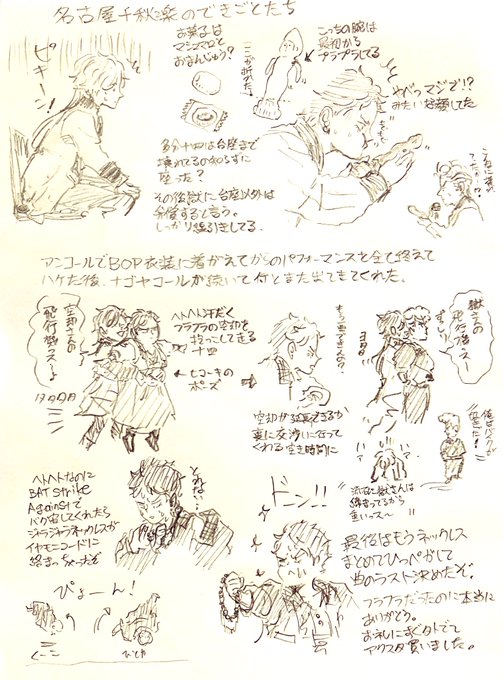 名古屋千秋楽のできごとたち
ピキーン!
お菓子は
マシュマロと
おまんじゅう?
ここが折れた。
こっちの腕は
最初から
プラプラしてる
やべっマジで!?
みたいな顔してた
多分十四は台座まで
壊れてるの知らずに
座った?
その後獄に台座以外は
弁償すると言う。
しっかり線引きしてる。
アンコールでBOP衣装に着がえてからのパフォーマンスを全て終えて
ハケた後、ナゴヤコールが続いて何とまた出てきてくれた。
空却さんの
飛行機っスーよ
ヘトヘト汗だく
フラフラの空却を
抱っこしてきる
十四
ヒコーキの
ポーズ
獄さんの
飛行機っスー
ずっしり
ヨロヨロ
空却が延長できるか
裏に交渉に行って
くれる空き時間に
ハァ
ハァ
流石に獄さんは
締まってるから
重いっス〜
ヘトヘトなのに
BAT Strike
Againstで
バク宙してくれたら
ジャラジャラネックレスが
イヤモニコードに
絡まっちゃったぞ
とれね…
ドーン!!
最後はもうネックレス
まとめてひっぺがして
曲のラスト決めたぞ。
フラフラだったのに本当に
ありがとう。
お礼にすぐ外でて
アクスタ買いました。
ぴょーん!
くーこー
ひとや